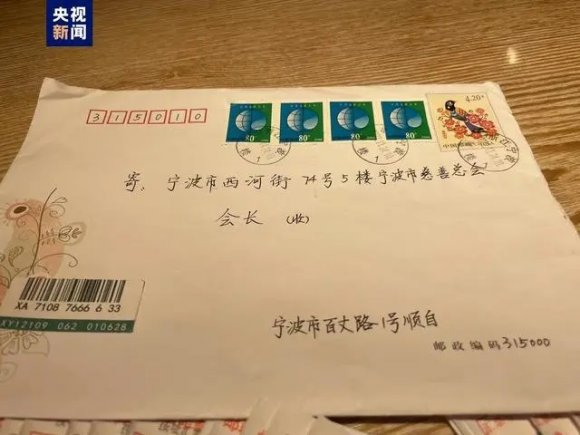 央视新闻
315010
80分 80分 80分 80分 4.20元
中国邮政
寄:宁波市西河街74号5楼宁波市慈善总会
会长(收)
XA 7108 7666 6 33
XY12109 062 010628
宁波市百丈路1号顺自
邮政编码315000